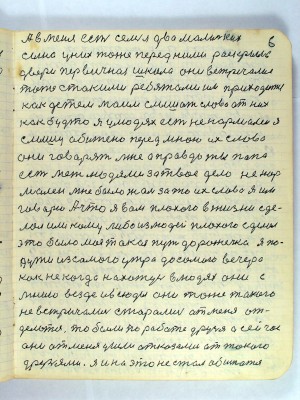 6
А в меня есть семья два маленких
сына у них тоже перед ними раскрыла
двери первичная школа они встречались
тоже с такими ребятами им приходится
как детям моим слышат слова от них
как будто я у людях есть не нармален я
слышу абижено перед мною их слова
они говарят мне а правда ты папа
есть меж людями за твое дело не нар
мален мне было жал за то их слова я им
говарю А что я вам плохого в жизни сде-
лал или кому либо из людей плохого сделал
это было моя такая путь дорожечка я по-
йду из самого утра до самого вечера
как не когда на хожу в людях они с
мною везде и всюду они тоже такого
не встречали старалис от меня от-
делится. то были по работе друзя а сейчас
они от меня ушли отказалис от такого
друзями. я и на это не стал абижатся